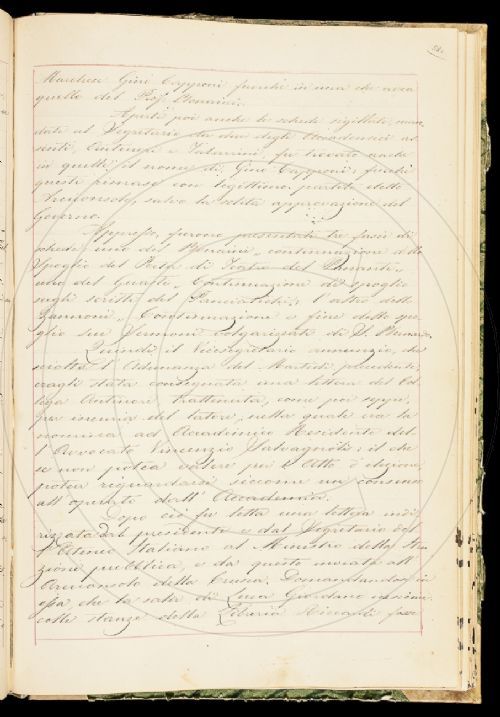 58.
Marchese Gino Capponi fuorchè in una che avea
quello del Prof. Nannucci.
Aperte poi anche le schede sigillate, man-
date al Segretario da due degli Accademici as-
senti, Centofanti e Tabarrini, fu trovato anche
in quelle il nome di Gino Capponi; sicchè
questi rimase con legittimo partito eletto
Arciconsolo, salvo la solita approvazione del
Governo.
Appresso, furono presentati tre fasci di
schede, uno del Bonaini, continuazione dello
Spoglio del Poeta di Teatro del Pananti,
uno del Guasti, Continuazione di spoglio
sugli scritti del Panciatichi; l'altro dello
Zannoni, Continuazione e fine dello spo-
glio sui Sermoni volgarizzati di S. Bernardo.
Quindi il Vicesegretario annunziò, che
sciolta l'Adunanza del Martedì precedente,
eragli stata consegnata una lettera del Col-
lega Cantinori trattenuta, come poi seppe,
per incuria del latore, nella quale era la
nomina ad Accademico Residente del-
l'Avvocato Vincenzio Salvagnoli; il che
se non potea valere per l'Atto d'elezione,
potea riguardarsi siccome un consenso
all'operato dall'Accademia.
Dopo ciò fu letta una lettera indi-
rizzata dal presidente e dal Segretario del-
l'Ateneo Italiano al Ministro della Istru-
zione pubblica, e da questo inviata all'
Arciconsolo della Crusca. Domandandosi in
essa, che la sala di Luca Giordano insieme
colle stanze della Libreria Riccardi fosse